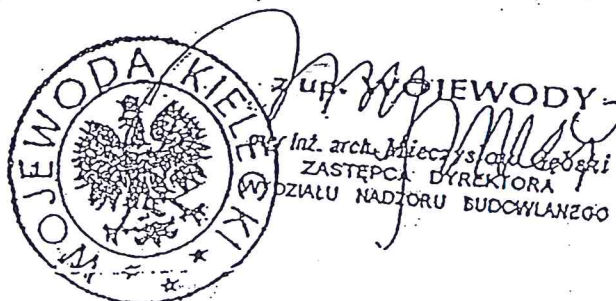 WOJEWODA KIELECKI
z up. WOJEWODY
inż. arch. Mieczysław Gębski
ZASTĘPCA DYREKTORA
WYDZIAŁU NADZORU BUDOWLANEGO